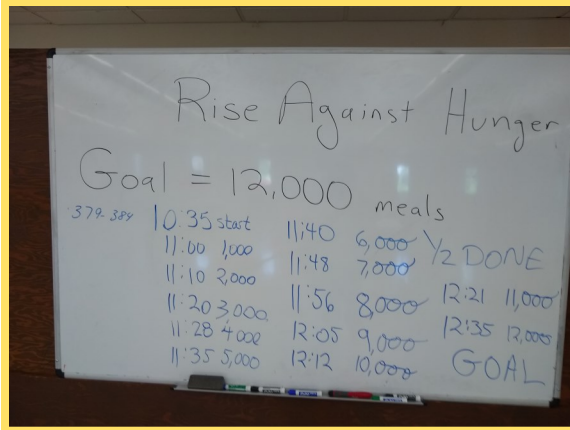 Rise Against Hunger
Goal = 12,000 meals
379-389
10:35 start
11:00 1,000
11:10 2,000
11:20 3,000
11:28 4000
11:35 5,000
11:40 6,000 1/2 DONE
11:48 7,000
11:56 8,000
12:05 9,000
12:12 10,000
12:21 11,000
12:35 12,000
GOAL